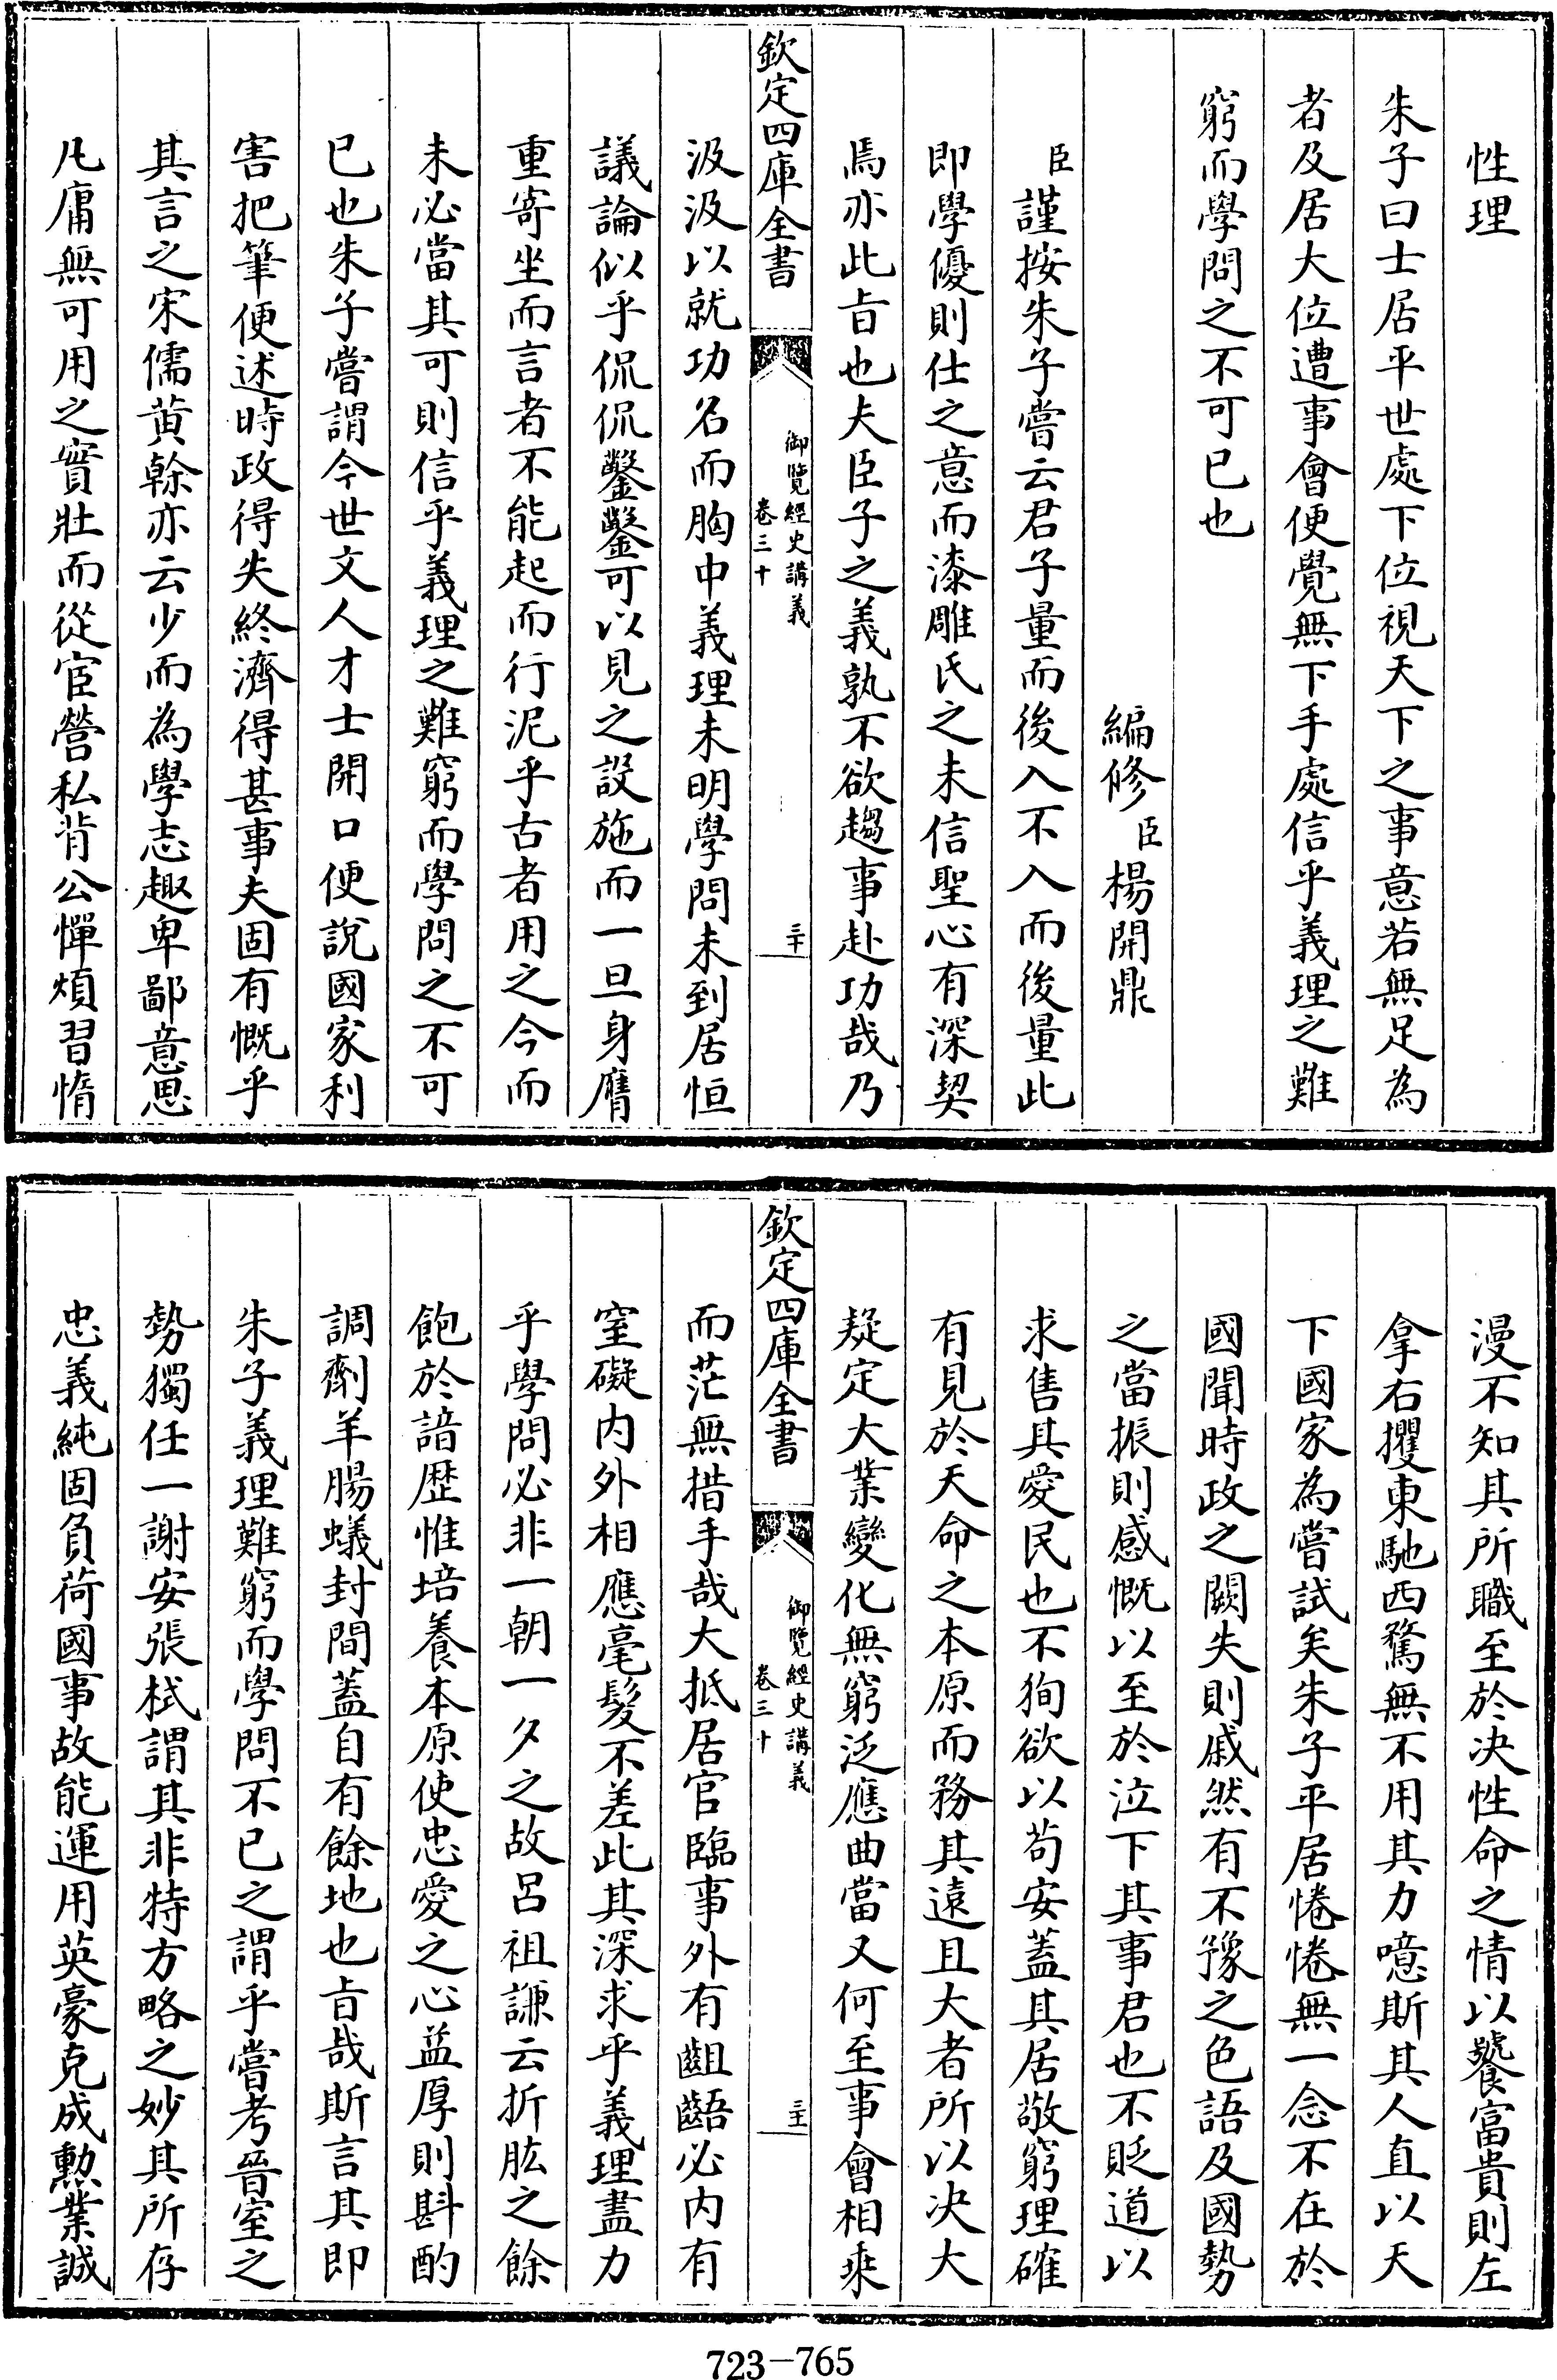 性理
朱子曰士居平世處下位視天下之事意若無足為
者及居大位遭事會便覺無下手處信乎義理之難
窮而學問之不可已也
編修臣楊開鼎
臣謹按朱子嘗云君子量而後入不入而後量此
即學優則仕之意而漆雕氏之未信聖心有深契
焉亦此旨也夫臣子之義孰不欲趨事赴功哉乃
欽定四庫全書
御覽經史講義
卷三十
三十
汲汲以就功名而胸中義理未明學問未到居恒
議論似乎侃侃鑿鑿可以見之設施而一旦身膺
重寄坐而言者不能起而行泥乎古者用之今而
未必當其可則信乎義理之難窮而學問之不可
已也朱子嘗謂今世文人才士開口便說國家利
害把筆便述時政得失終濟得甚事夫固有慨乎
其言之宋儒黃榦亦云少而為學志趣卑鄙意思
凡庸無可用之實壯而從宦營私背公憚煩習惰
漫不知其所職至於決性命之情以饕富貴則左
拿右攫東馳西騖無不用其力噫斯其人直以天
下國家為嘗試矣朱子平居惓惓無一念不在於
國聞時政之闕失則戚然有不豫之色語及國勢
之當振則感慨以至於泣下其事君也不貶道以
求售其愛民也不狥欲以苟安蓋其居敬窮理確
有見於天命之本原而務其遠且大者所以決大
疑定大業變化無窮泛應曲當又何至事會相乘
欽定四庫全書
御覽經史講義
卷三十
三十一
而茫無措手哉大抵居官臨事外有齟齬必內有
窒礙内外相應毫髮不差此其深求乎義理盡力
乎學問必非一朝一夕之故呂祖謙云折肱之餘
飽於諳歴惟培養本原使忠愛之心益厚則斟酌
調劑羊腸蟻封間蓋自有餘地也旨哉斯言其即
朱子義理難窮而學問不已之謂乎嘗考晉室之
勢獨任一謝安張栻謂其非特方略之妙其所存
忠義純固負荷國事故能運用英豪克成勲業誠
723-765